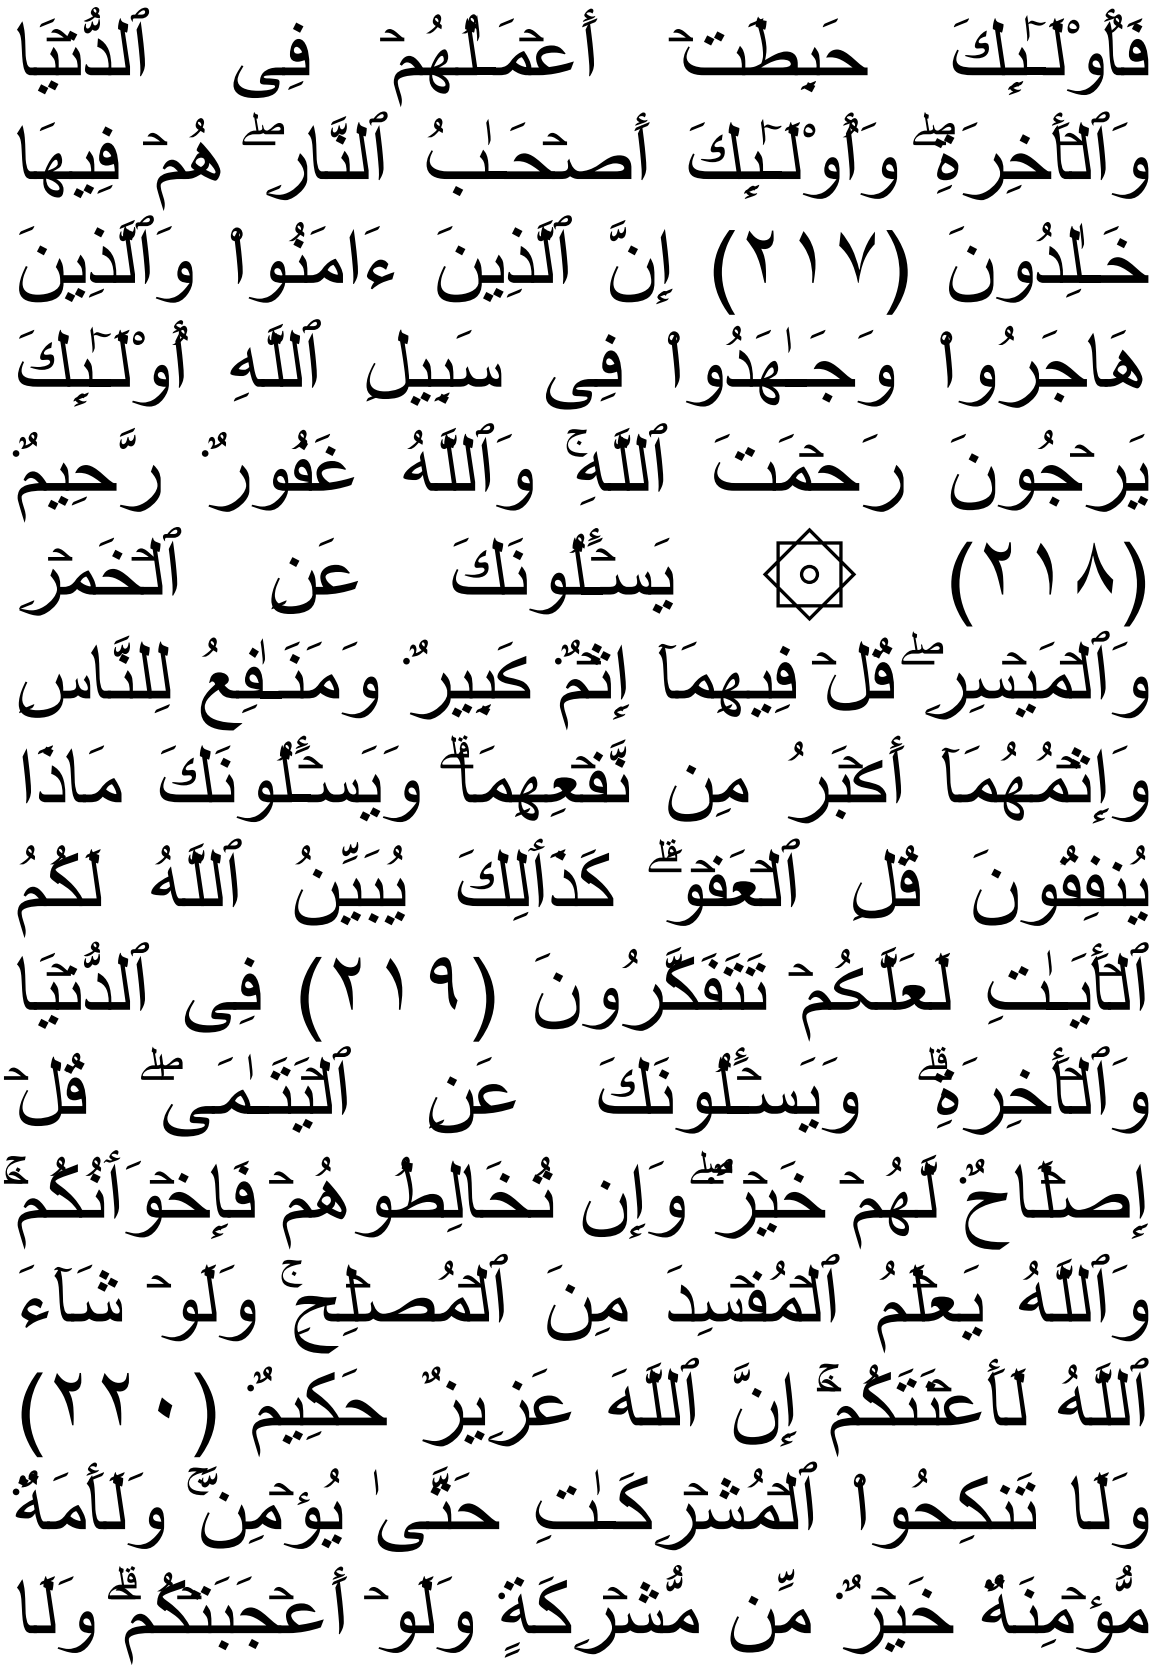 فَأُو۟لَـٰٓىِٕكَ حَبِطَتۡ أَعۡمَـٰلُهُمۡ فِی ٱلدُّنۡیَا
وَٱلۡـَٔاخِرَةِۖ وَأُو۟لَـٰٓىِٕكَ أَصۡحَـٰبُ ٱلنَّارِۖ هُمۡ فِیهَا
خَـٰلِدُونَ (٢١٧) إِنَّ ٱلَّذِینَ ءَامَنُوا۟ وَٱلَّذِینَ
هَاجَرُوا۟ وَجَـٰهَدُوا۟ فِی سَبِیلِ ٱللَّهِ أُو۟لَـٰٓىِٕكَ
یَرۡجُونَ رَحۡمَتَ ٱللَّهِۚ وَٱللَّهُ غَفُورࣱ رَّحِیمࣱ
(٢١٨) ۞ یَسۡـَٔلُونَكَ عَنِ ٱلۡخَمۡرِ
وَٱلۡمَیۡسِرِۖ قُلۡ فِیهِمَاۤ إِثۡمࣱ كَبِیرࣱ وَمَنَـٰفِعُ لِلنَّاسِ
وَإِثۡمُهُمَاۤ أَكۡبَرُ مِن نَّفۡعِهِمَاۗ وَیَسۡـَٔلُونَكَ مَاذَا
یُنفِقُونَ قُلِ ٱلۡعَفۡوَۗ كَذَ ٰ⁠لِكَ یُبَیِّنُ ٱللَّهُ لَكُمُ
ٱلۡـَٔایَـٰتِ لَعَلَّكُمۡ تَتَفَكَّرُونَ (٢١٩) فِی ٱلدُّنۡیَا
وَٱلۡـَٔاخِرَةِۗ وَیَسۡـَٔلُونَكَ عَنِ ٱلۡیَتَـٰمَىٰۖ قُلۡ
إِصۡلَاحࣱ لَّهُمۡ خَیۡرࣱۖ وَإِن تُخَالِطُوهُمۡ فَإِخۡوَ ٰ⁠نُكُمۡۚ
وَٱللَّهُ یَعۡلَمُ ٱلۡمُفۡسِدَ مِنَ ٱلۡمُصۡلِحِۚ وَلَوۡ شَاۤءَ
ٱللَّهُ لَأَعۡنَتَكُمۡۚ إِنَّ ٱللَّهَ عَزِیزٌ حَكِیمࣱ (٢٢٠)
وَلَا تَنكِحُوا۟ ٱلۡمُشۡرِكَـٰتِ حَتَّىٰ یُؤۡمِنَّۚ وَلَأَمَةࣱ
مُّؤۡمِنَةٌ خَیۡرࣱ مِّن مُّشۡرِكَةࣲ وَلَوۡ أَعۡجَبَتۡكُمۡۗ وَلَا